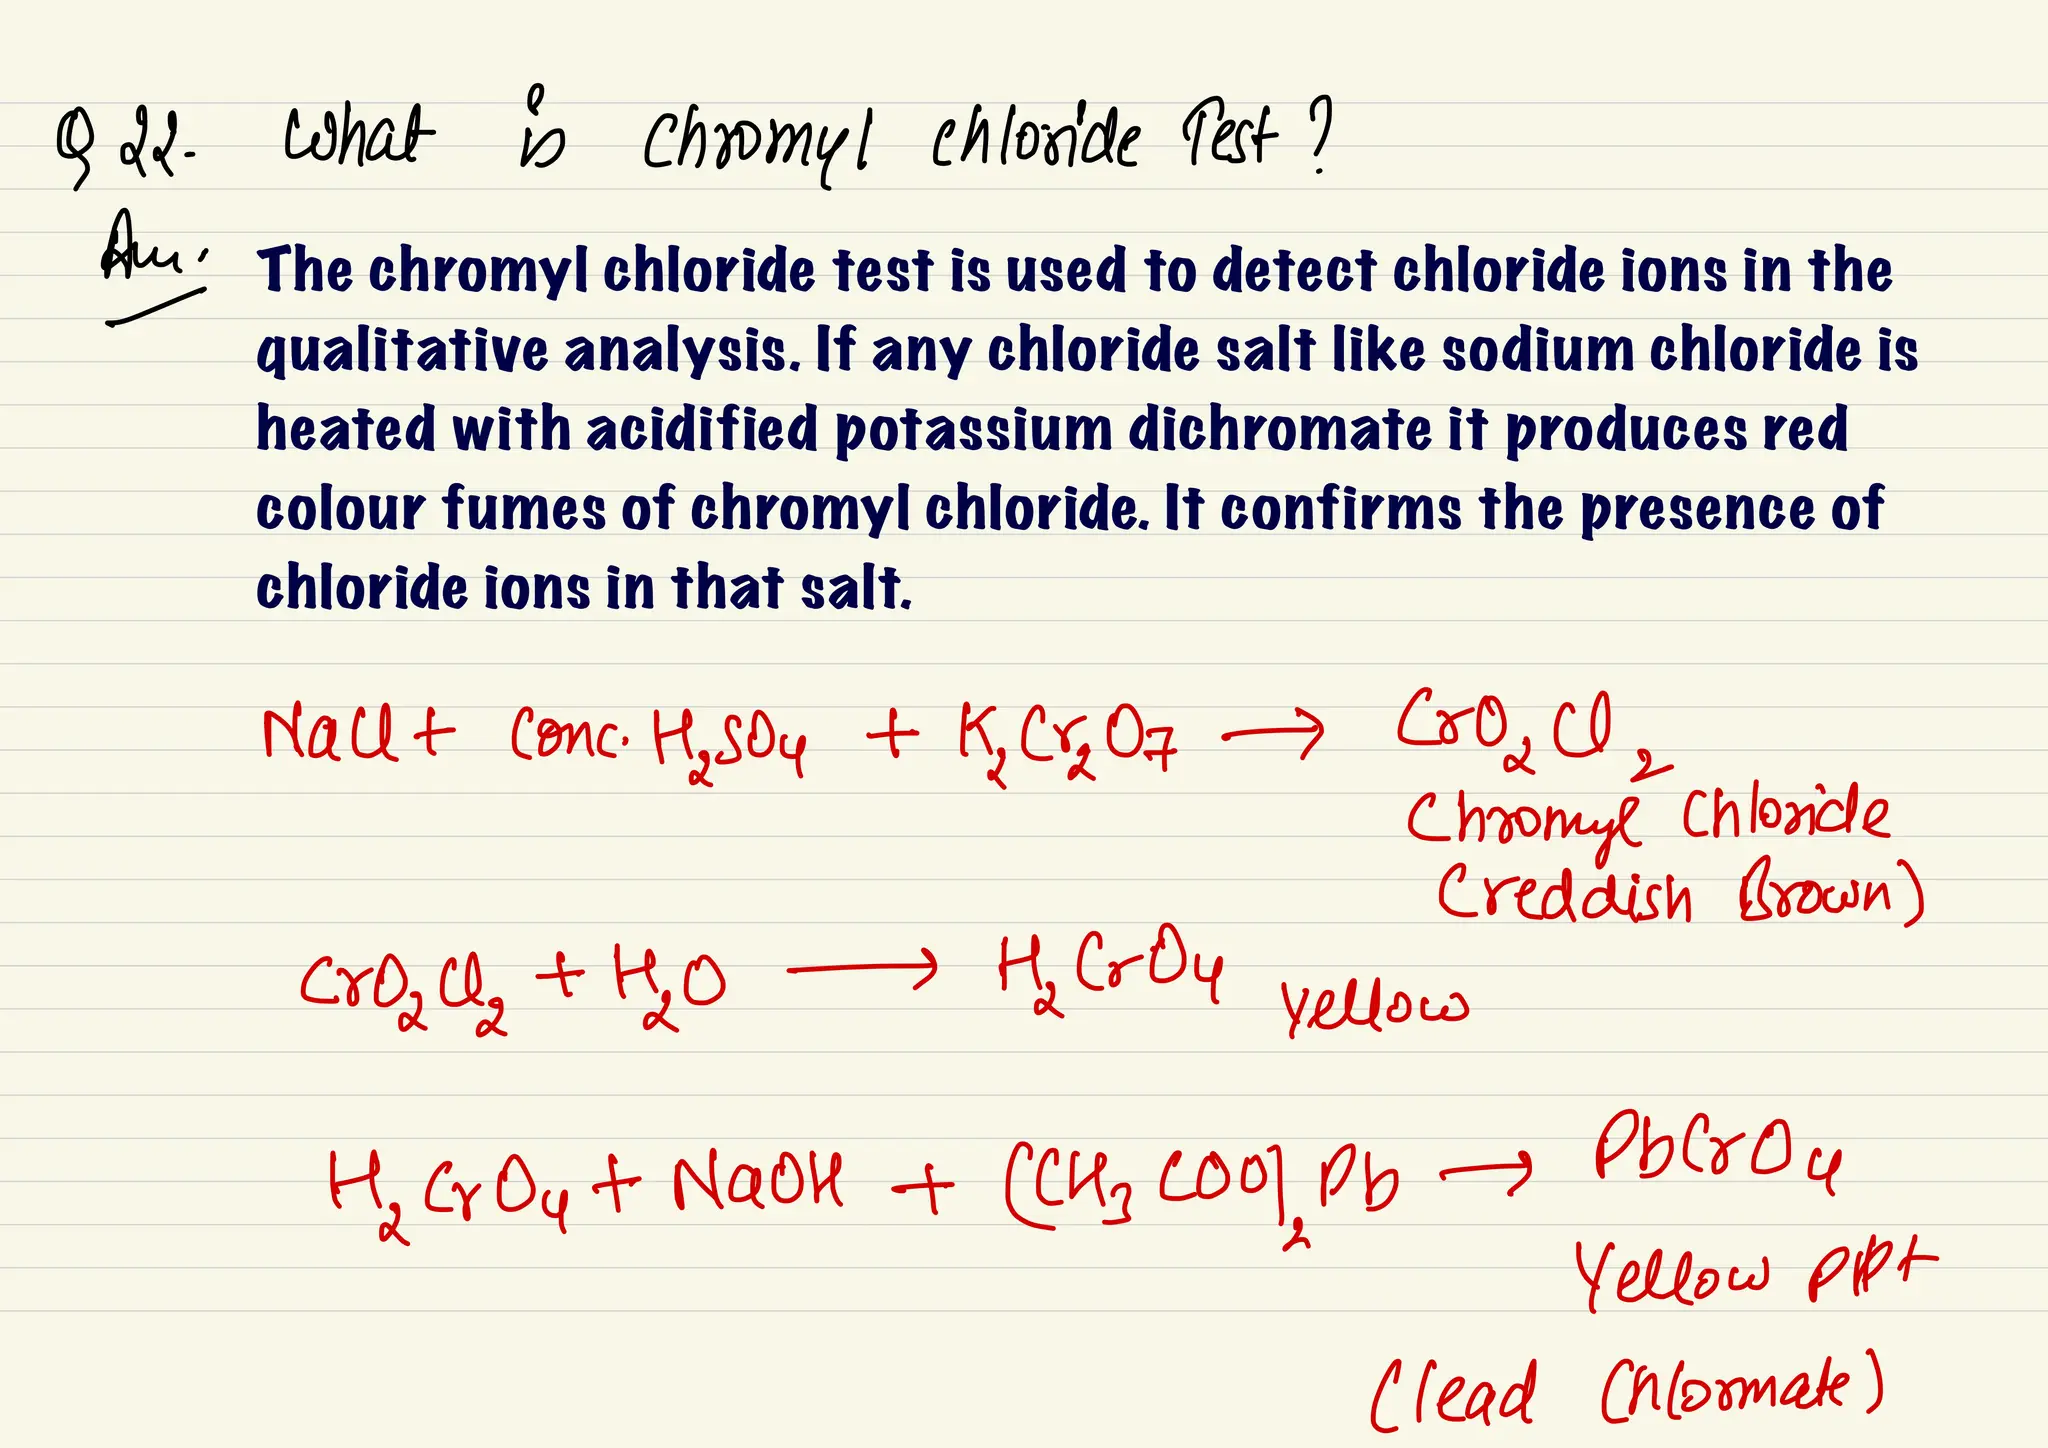 Q 22. What is Chromyl Chloride Test?
Ans.
The chromyl chloride test is used to detect chloride ions in the
qualitative analysis. If any chloride salt like sodium chloride is
heated with acidified potassium dichromate it produces red
colour fumes of chromyl chloride. It confirms the presence of
chloride ions in that salt.
NaCl + Conc. H₂SO₄ + K₂Cr₂O₇ → CrO₂Cl₂
Chromyl Chloride
(reddish Brown)
CrO₂Cl₂ + H₂O → H₂CrO₄ yellow
H₂CrO₄ + NaOH + (CH₃COO)₂Pb → PbCrO₄
Yellow PPt
(lead Chlormate)